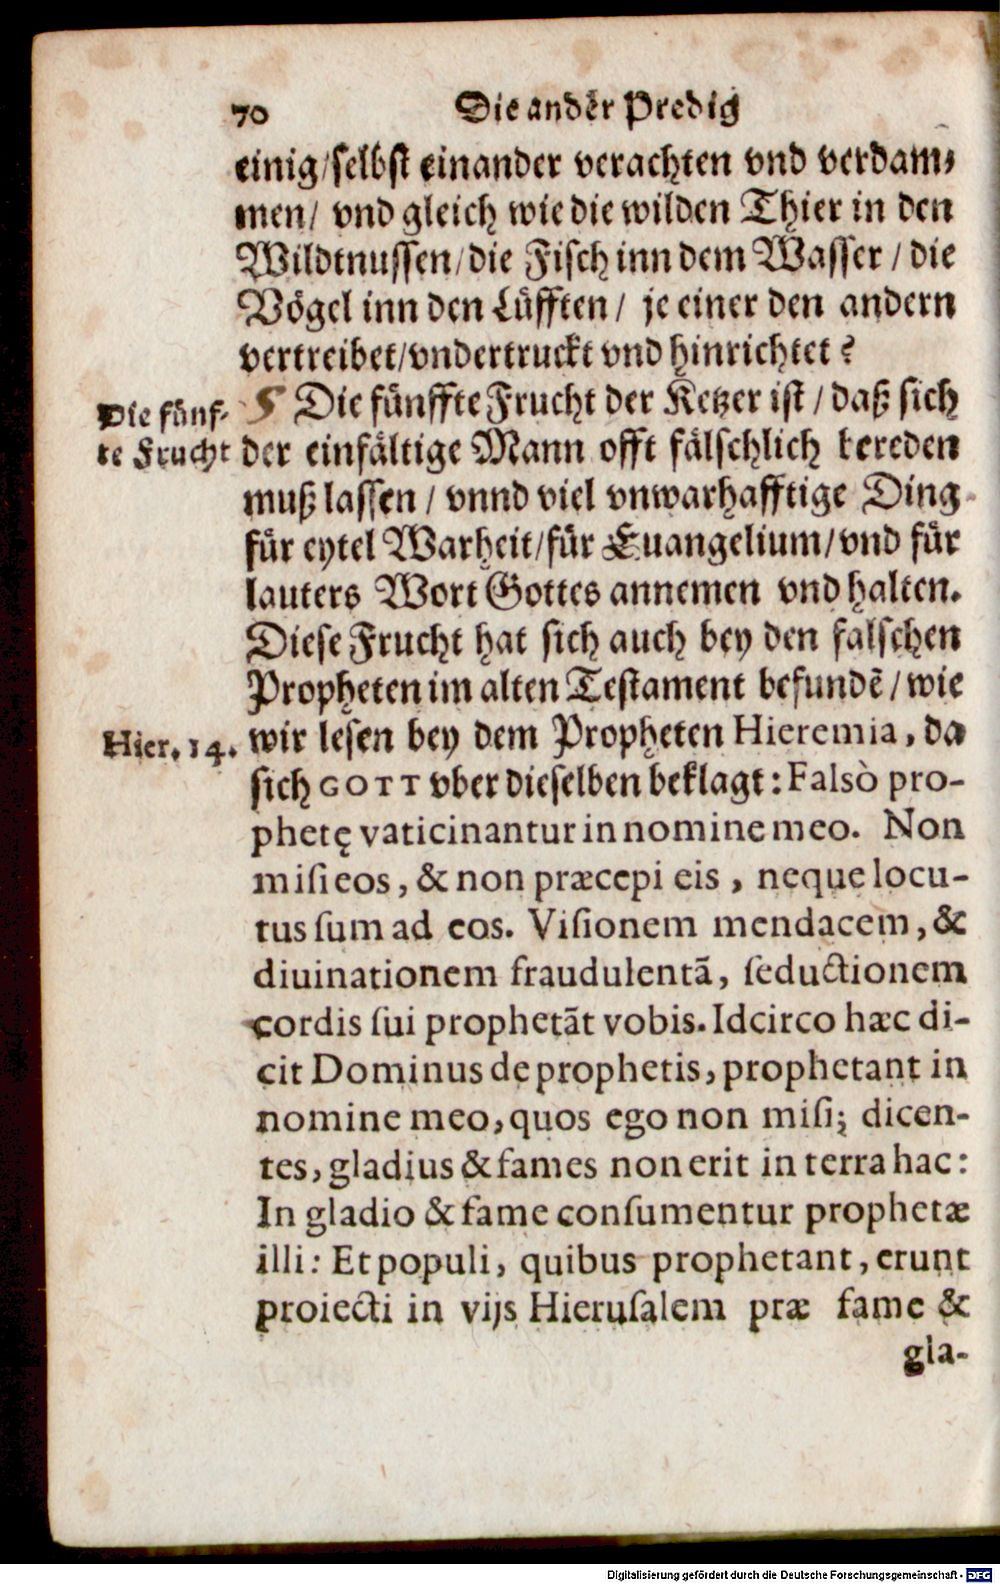 70 Die ander Predig
einig/selbst einander verachten vnd verdam-
men/ vnd gleich wie die wilden Thier in den
Wildtnussen/die Fisch inn dem Wasser / die
Vögel inn den Lüfften/ je einer den andern
vertreibet/vndertruckt vnd hinrichtet?
Die fünf-
te Frucht
5 Die fünffte Frucht der Ketzer ist / daß sich
der einfältige Mann offt fälschlich bereden
muß lassen / vnnd viel vnwarhafftige Ding
für eytel Warheit/für Euangelium/vnd für
lauters Wort Gottes annemen vnd halten.
Diese Frucht hat sich auch bey den falschen
Propheten im alten Testament befundē/ wie
Hier. 14.
wir lesen bey dem Propheten Hieremia, da
sich GOTT vber dieselben beklagt: Falsò pro-
phetę vaticinantur in nomine meo. Non
misi eos, & non præcepi eis, neque locu-
tus sum ad eos. Visionem mendacem, &
diuinationem fraudulentā, seductionem
cordis sui prophetāt vobis. Idcirco hæc di-
cit Dominus de prophetis, prophetant in
nomine meo, quos ego non misi; dicen-
tes, gladius & fames non erit in terra hac:
In gladio & fame consumentur prophetæ
illi: Et populi, quibus prophetant, erunt
proiecti in vijs Hierusalem præ fame &
gla-
Digitalisierung gefördert durch die Deutsche Forschungsgemeinschaft - DFG